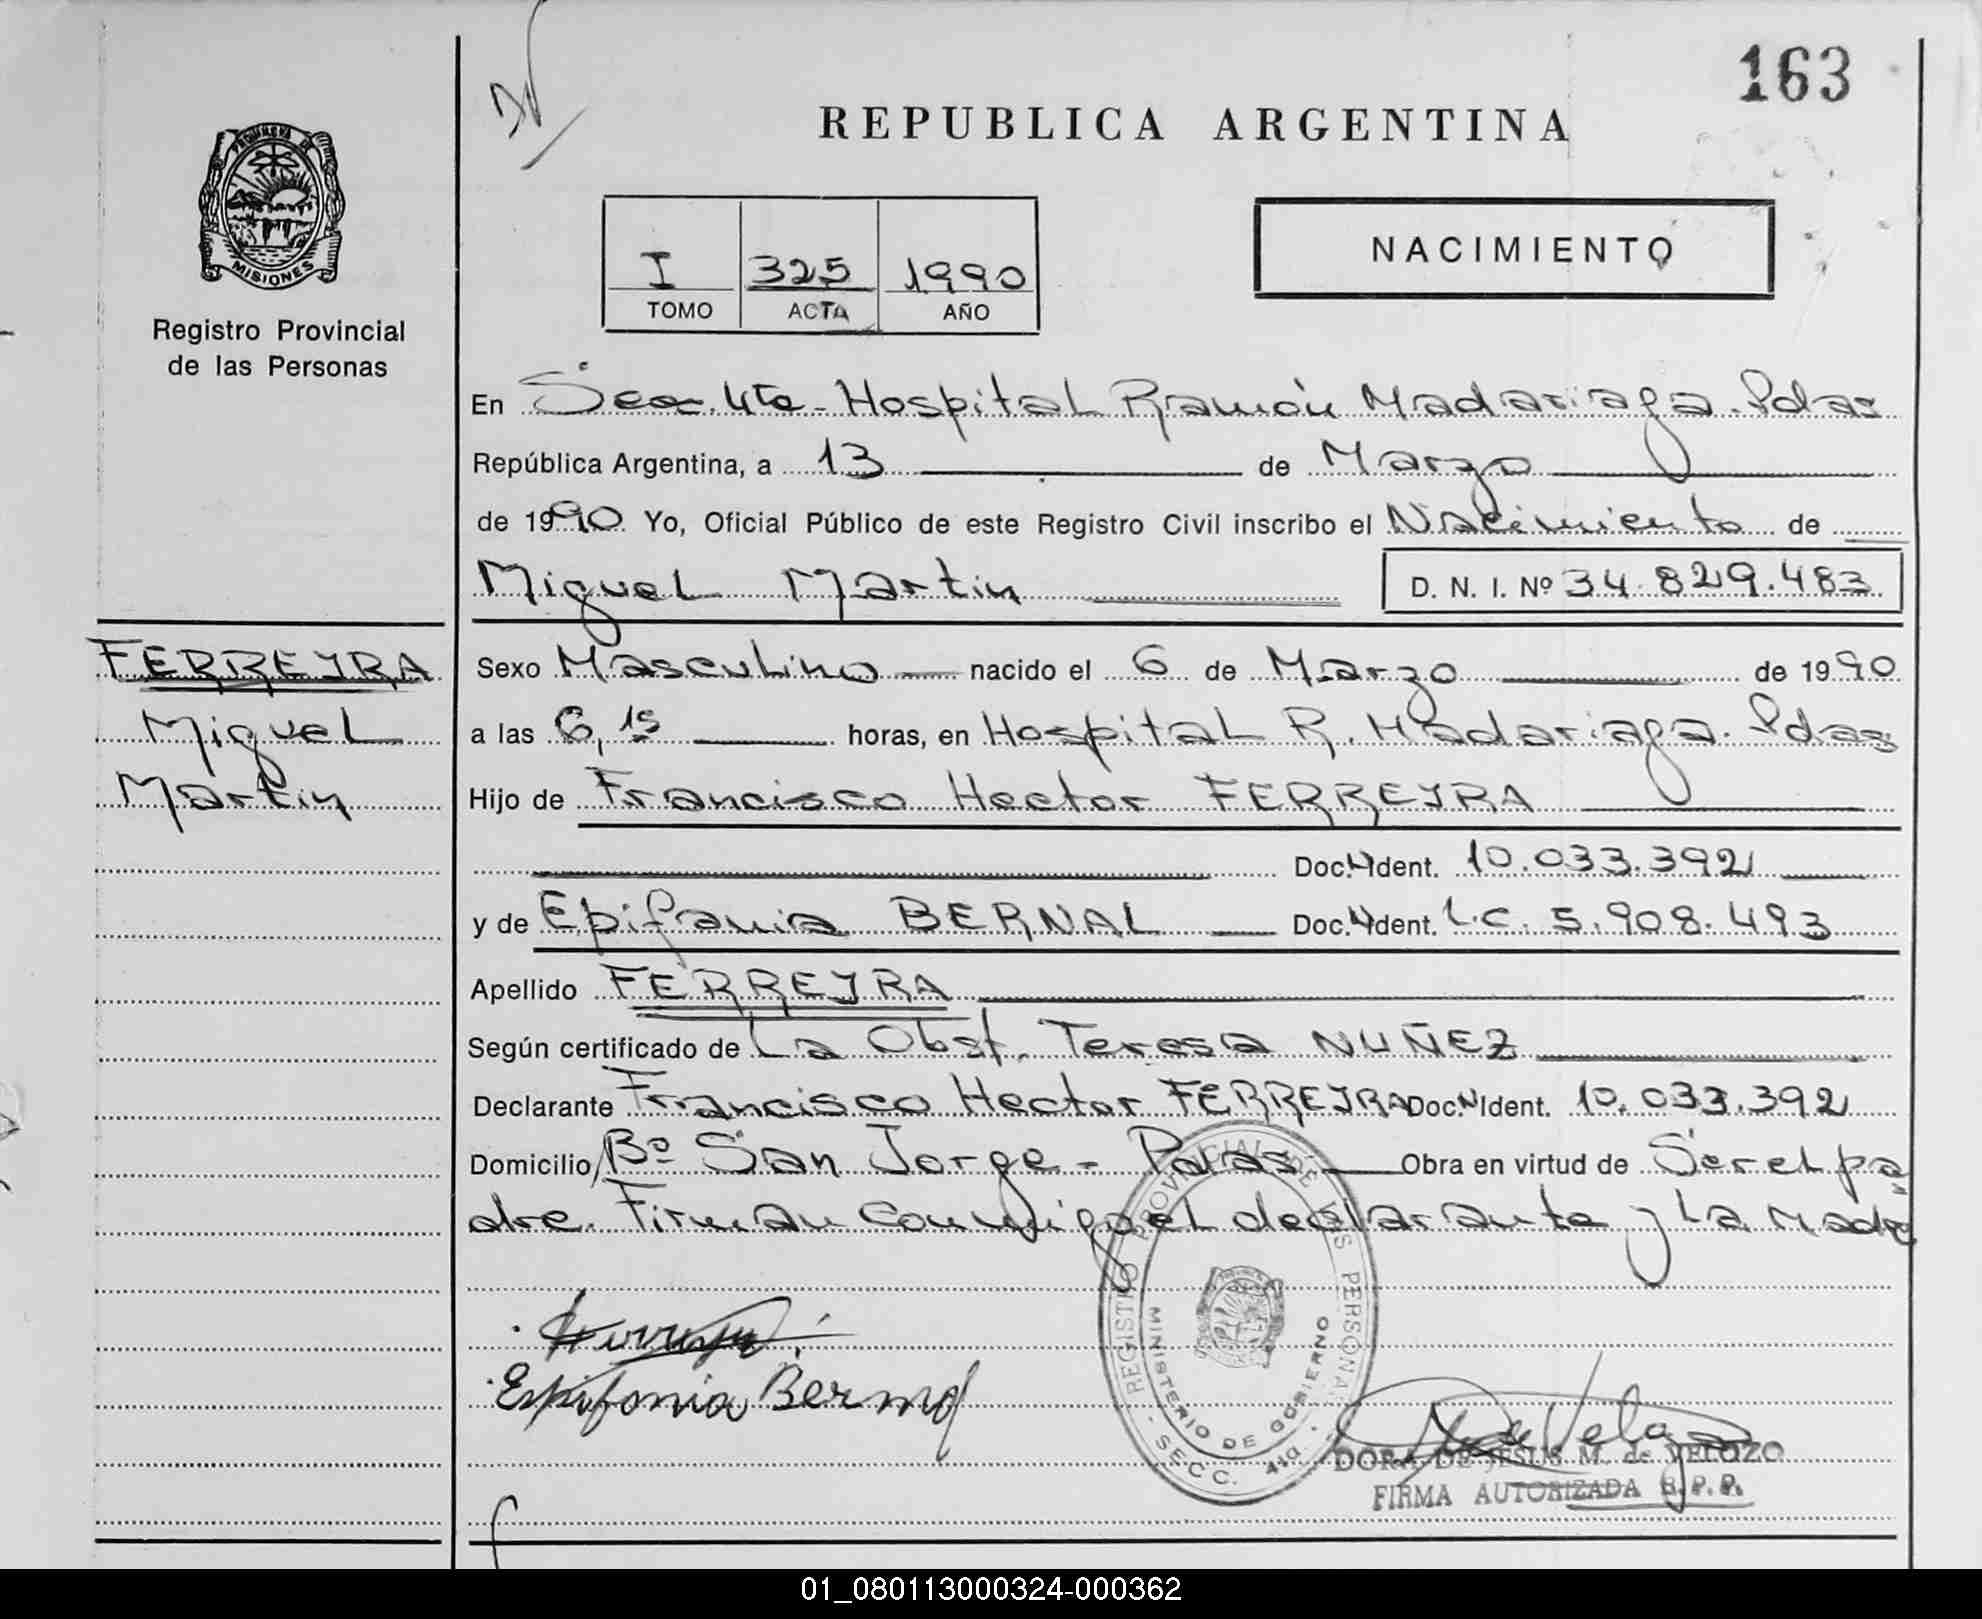 163
REPUBLICA ARGENTINA
PROVINCIA DE
MISIONES
Registro Provincial
de las Personas
I 325 1990
TOMO ACTA AÑO
NACIMIENTO
En Secc. 4ta - Hospital Ramón Madariaga. Pdas
República Argentina, a 13 de Marzo
de 1990 Yo, Oficial Público de este Registro Civil inscribo el Nacimiento de
Miguel Martin D. N. I. Nº 34.829.483
FERREYRA
Miguel
Martin
Sexo Masculino nacido el 6 de Marzo de 1990
a las 6,15 horas, en Hospital R. Madariaga. Pdas
Hijo de Francisco Hector FERREYRA
Doc. Ident. 10.033.392
y de Epifania BERNAL Doc. Ident. L.C. 5.908.493
Apellido FERREYRA
Según certificado de La Obst. Teresa NUÑEZ
Declarante Francisco Hector FERREYRA Doc. Ident. 10.033.392
Domicilio Bº San Jorge - Pdas Obra en virtud de Ser el pa
dre. Firman conmigo el declarante y la Madre
Epifania Bernal
REGISTRO PROVINCIAL DE LAS PERSONAS
MINISTERIO DE GOBIERNO
- SECC. 4ta. -
DORA DE JESUS M. de VELOZO
FIRMA AUTORIZADA R.P.P.
01_080113000324-000362